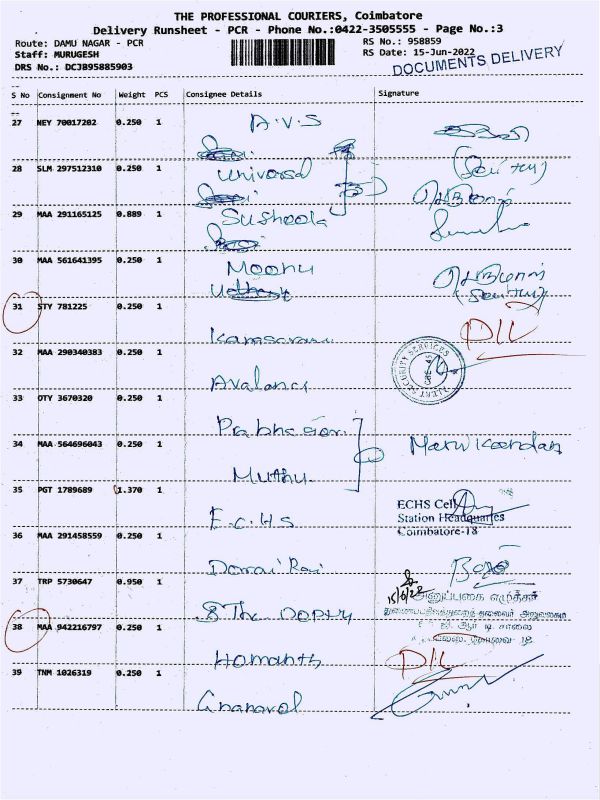 THE PROFESSIONAL COURIERS, Coimbatore
Delivery Runsheet - PCR - Phone No.:0422-3505555 - Page No.:3
Route: DAMU NAGAR - PCR
RS No.: 958859
Staff: MURUGESH
RS Date: 15-Jun-2022
DRS No.: DCJB95885903
DOCUMENTS DELIVERY
S No Consignment No Weight PCS Consignee Details Signature
27 NEY 70017202 0.250 1 A.V.S
28 SLM 297512310 0.250 1 Universal
29 MAA 291165125 0.889 1 Susheela
30 MAA 561641395 0.250 1 Moonu
31 STY 781225 0.250 1 D/L
32 MAA 290340383 0.250 1 Avalanci
ALERT SECURITY SERVICES
CBE-45
33 OTY 3670320 0.250 1 Prabha Gori
34 MAA 564696043 0.250 1 Muthu
35 PGT 1789689 1.370 1 E.C.H.S
ECHS Cell
Station Headquarters
Coimbatore-18
36 MAA 291458559 0.250 1 Dorrai Raj
37 TRP 5730647 0.950 1 The Dopty
15/6/22
அனுப்புகை எழுத்தர்
38 MAA 942216797 0.250 1 Homanth D/L
39 TNM 1026319 0.250 1 Gnanavel